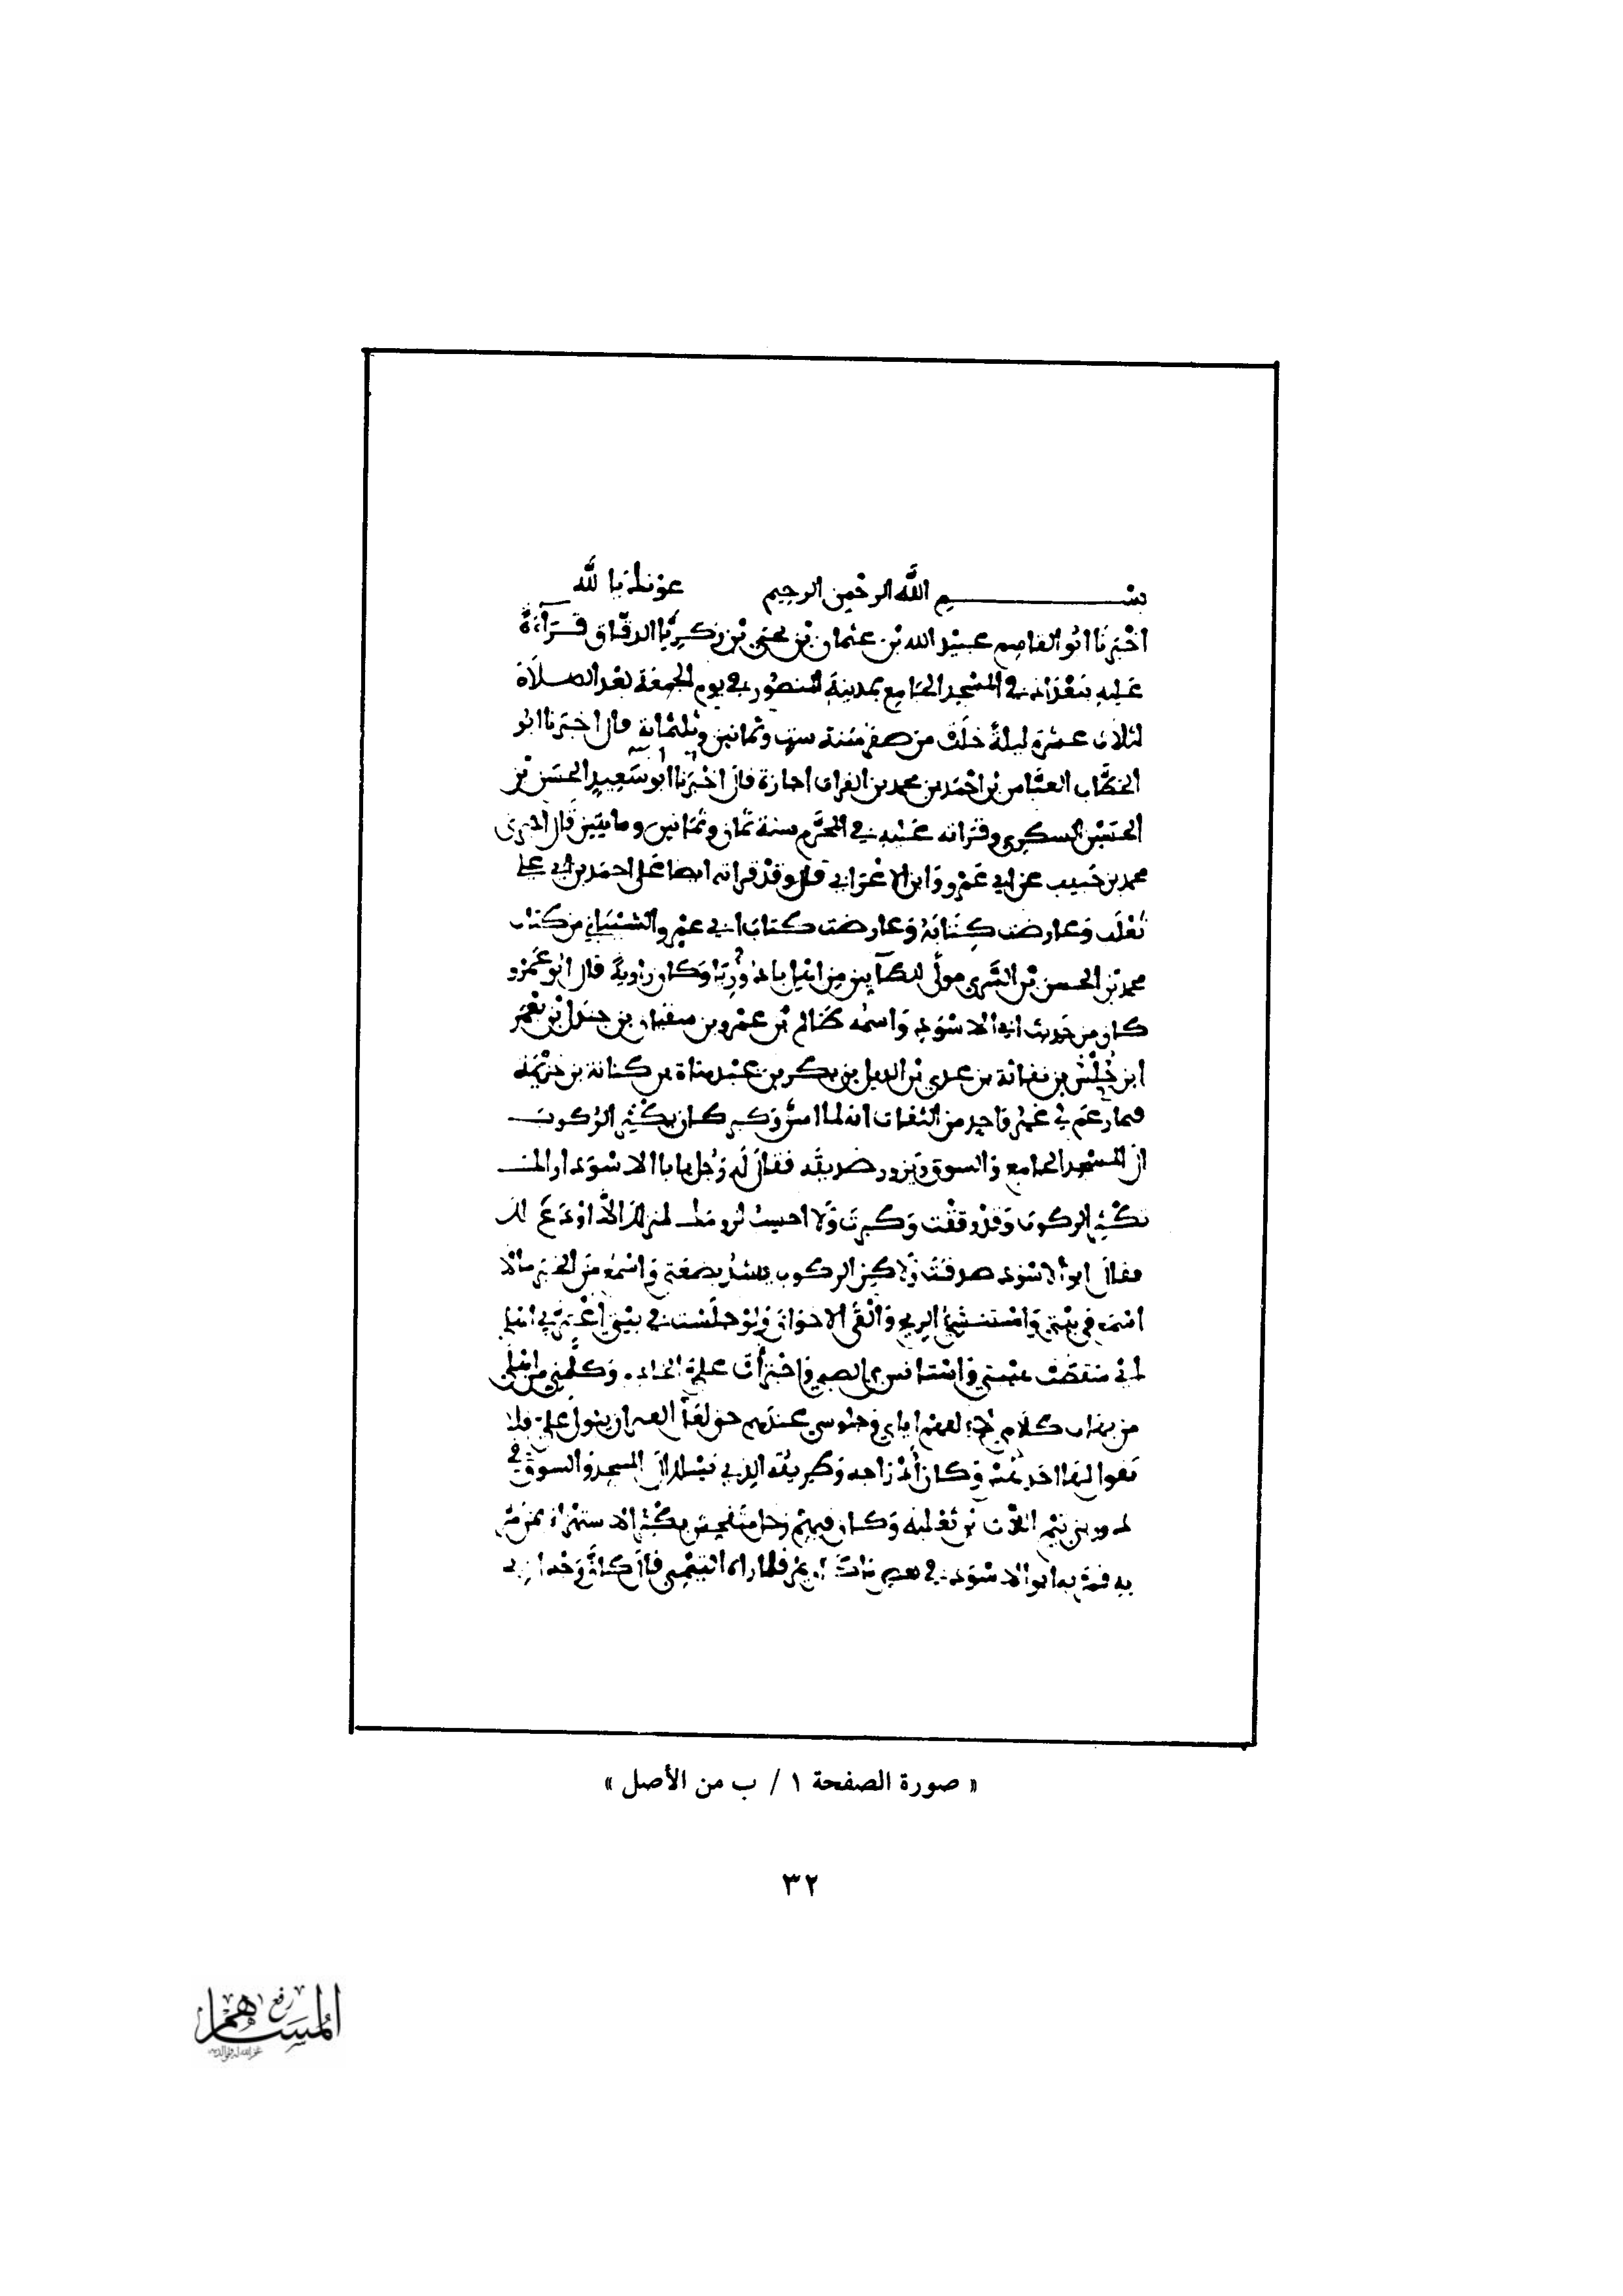 بسم الله الرحمن الرحيم عونك يا لله
اخبرنا ابو القاسم عبيد الله بن عثمان بن يحيى بن زكريا الدقاق قراءة
عليه ببغداد في المسجد الجامع بمدينة المنصور في يوم الجمعة بعد الصلاة
لثلاث عشرة ليلة خلت من صفر سنة ست وثمانين وثلثمائة قال اخبرنا ابو
الخطاب العباس بن احمد بن محمد بن الفرات اجازة قال اخبرنا ابو سعيد الحسن بن
الحسين السكري وقراته عليه في المحرم سنة ثمان وثمانين ومايتين قال اخبرني
محمد بن حبيب عن ابي عمرو وابن الاعرابي قال وقد قراته ايضا على احمد بن يحيى
ثعلب وعارضت كتابه وعارضت كتاب ابي عمرو الشيباني من كتاب
محمد بن الحسن بن السري مولى للطآيين من اهل وكان راوية قال ابو عمرو
كان من حديث ابي الاسود واسمه ظالم بن عمرو بن سفيان بن جندل بن يعمر
ابن حلس بن نفاثة بن عدي بن الديل بن بكر بن عبد مناة بن كنانة بن خزيمة
فيما زعم لي غير واحد من الثقات انه لما اسن وكبر كان يكثر الركوب
الى المسجد الجامع والسوق ويزور صديقه فقال له رجل يا با الاسود اراك
تكثر الركوب وقد وكبرت ولا لمنزلك اودع لك
فقال ابو الاسود صدقت ولاكن الركوب يشد بضعتي واسمع من الخبر مالا
اسمع في بيتي واستنشي الريح والقى الاخوان ولو جلست في بيتي بي اهلي
واجترأت علي الخادم وكلمني من اهلي
من يهاب كلامي اياي وجلوسي عندهم حتى لعل العنز ان يبول علي فلا
يقول لها احد وكان وطريقه الذي يسلك الى المسجد والسوق في
بني تيم اللات بن ثعلبة وكان فيهم رجل متفحش يكثر الاستهزاء بمن مر
به فمر به ابو الاسود في بعض ذلك فلما راه التيمي قال كان وجه ابي
« صورة الصفحة ١ / ب من الأصل »
٣٢
رفع
المساهم
غفر الله له ولوالديه